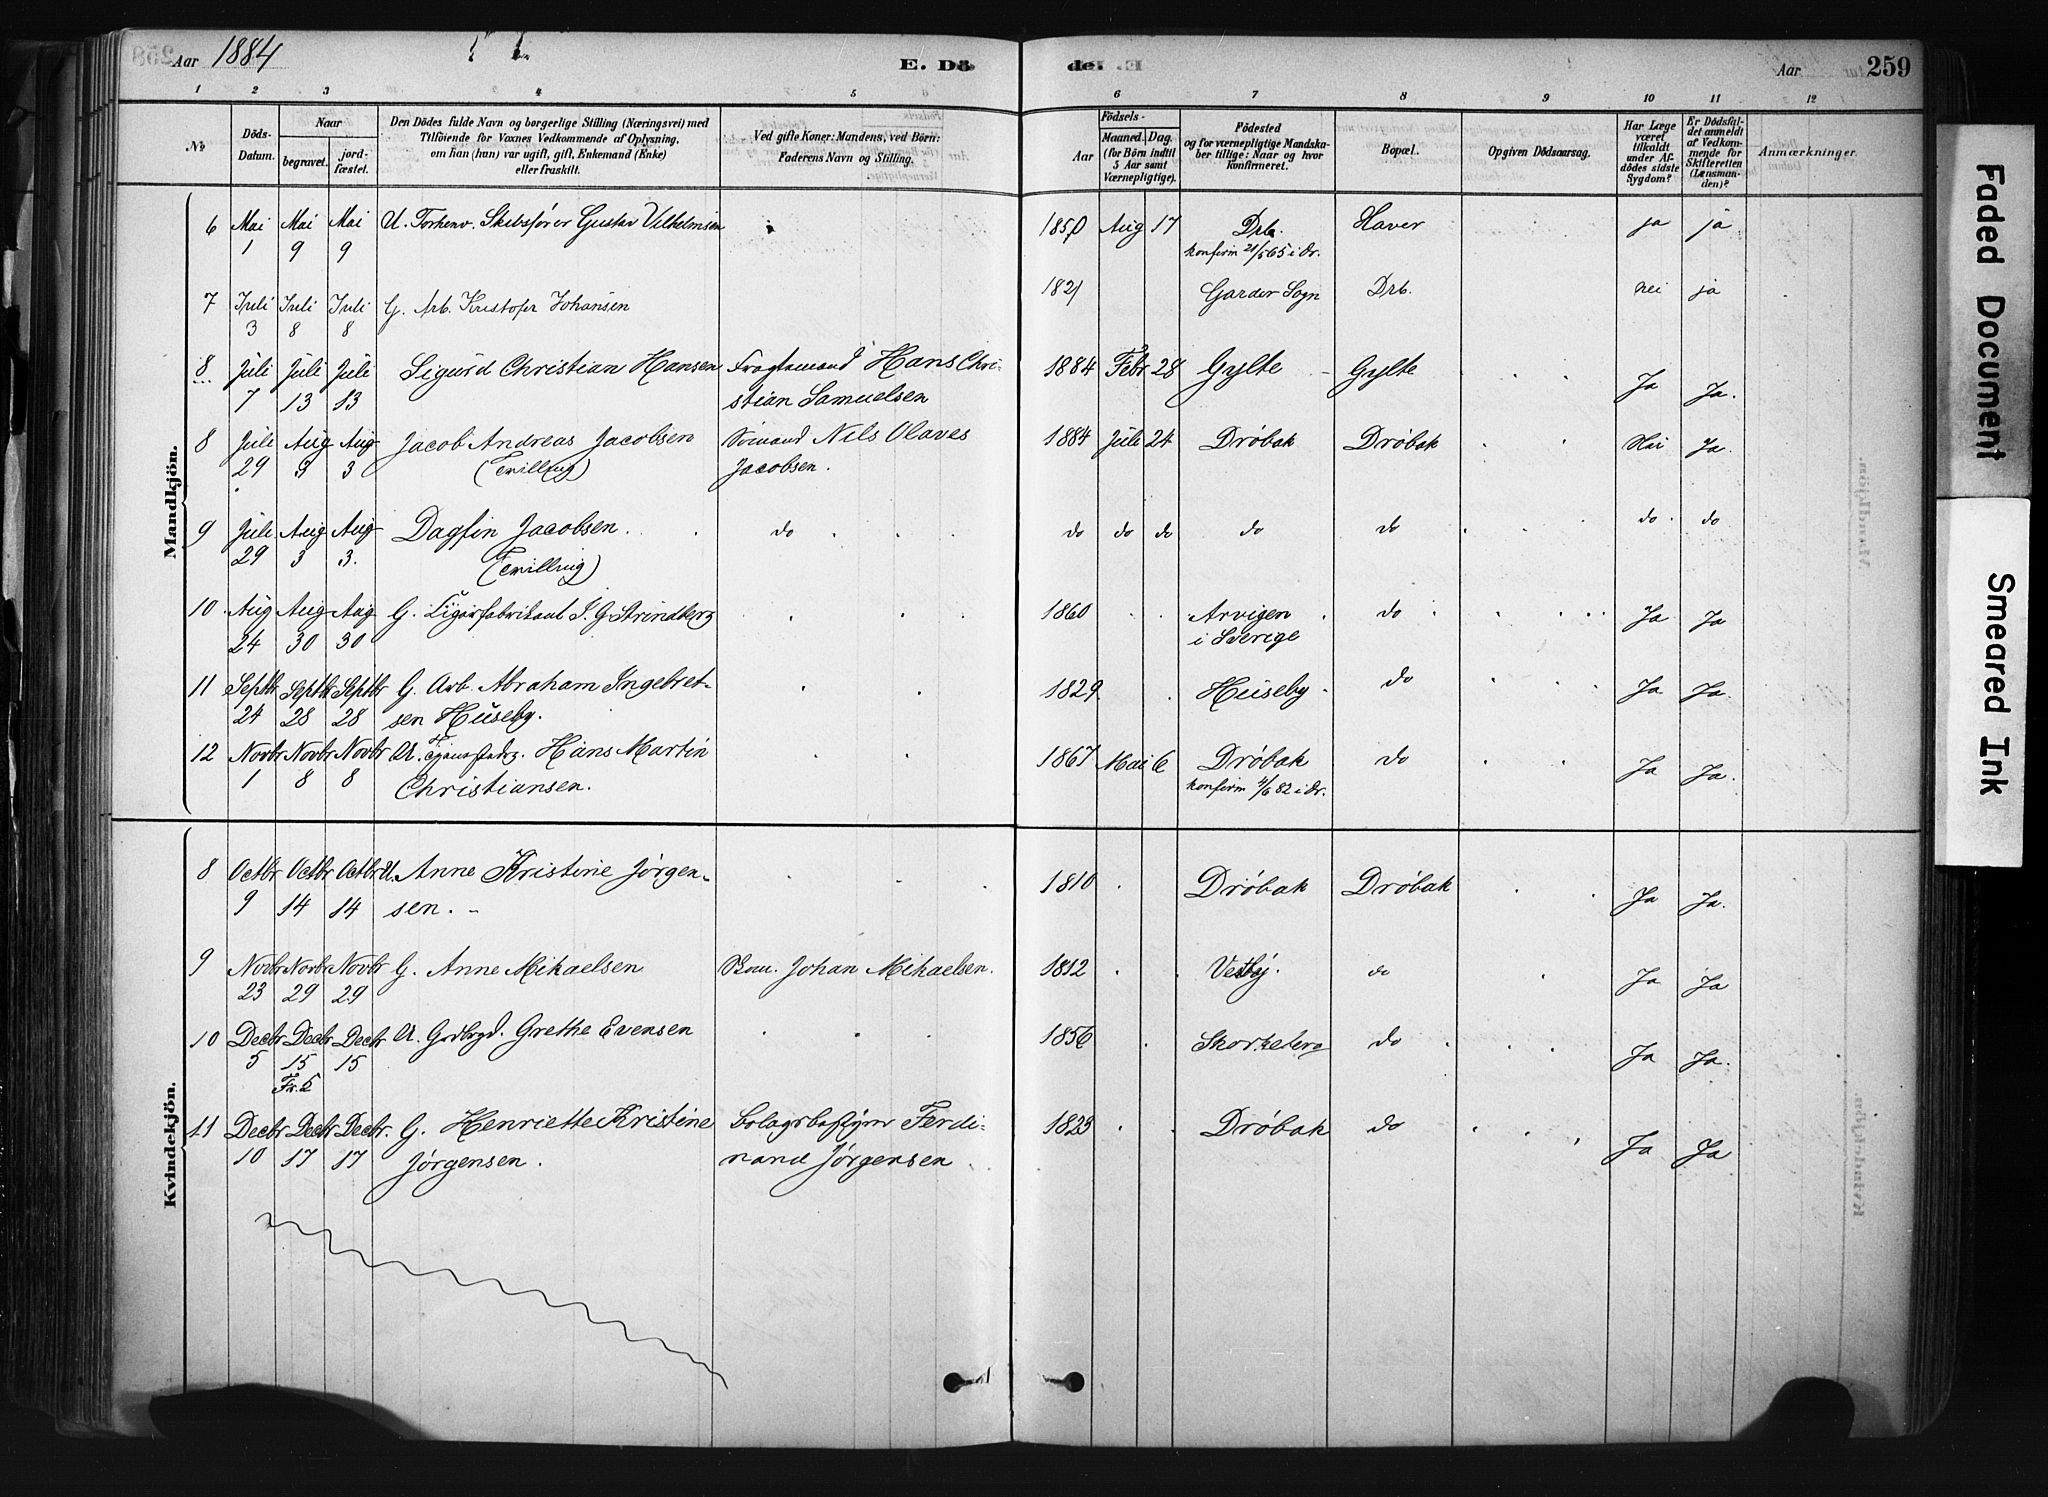 Aar 1884
E. Dö
de.
Aar
259
1 2 3 4 5 6 7 8 9 10 11 12
№
Döds-
Datum.
Naar
begravet.
jord-
fæstet.
Den Dödes fulde Navn og borgerlige Stilling (Næringsvei) med
Tilföiende for Voxnes Vedkommende af Oplysning,
om han (hun) var ugift, gift, Enkemand (Enke)
eller fraskilt.
Ved gifte Koner: Mandens, ved Börn:
Faderens Navn og Stilling.
Födsels-
Aar
Maaned. Dag.
(for Börn indtil
5 Aar samt
Værnepligtige).
Födested
og for værnepligtige Mandska-
ber tillige: Naar og hvor
konfirmeret.
Bopæl.
Opgiven Dödsaarsag.
Har Læge
været
tilkaldt
under Af-
dödes sidste
Sygdom?
Er Dödsfal-
det anmeldt
af Vedkom-
mende for
Skifteretten
(Lensman-
den)?
Anmærkninger
Mandkjön.
6 Mai Mai Mai U. Forhenv. Skibsfører Gustav Vilhelmsen 1850 Aug 17 Drb. Haver ja ja
1 9 9 konfirm 21/5 65 i Dr.
7 Juli Juli Juli G. Arb. Kristofer Johansen 1821 Garder Sogn Drb. nei ja
3 8 8
8 Juli Juli Juli Sigurd Christian Hansen Fragtemand Hans Chri- 1884 Febr 28 Gylte Gylte Ja Ja.
7 13 13 stian Samuelsen
8 Juli Aug Aug Jacob Andreas Jacobsen Sömand Nils Olaves 1884 Juli 24 Drøbak Drøbak Nei Ja.
29 3 3 (Tvilling) Jacobsen.
9 Juli Aug Aug Dagfin Jacobsen. do do do do do do do do
29 3 3. (Tvilling)
10 Aug Aug Aug G. Sigarfabrikant J. G. Strindberg 1860 Arvigen do Ja Ja
24 30 30 i Sverige
11 Septbr Septbr Septbr G. Arb. Abraham Ingebret- 1829 Huseby do Ja Ja.
24 28 28 sen Huseby.
12 Novbr Novbr Novbr U. Hans Martin 1867 Mai 6 Drøbak do Ja Ja.
1 8 8 Christiansen. konfirm 4/6 82 i Dr.
Kvindekjön.
8 Octbr Octbr Octbr U. Anne Kristine Jørgen- 1810 Drøbak Drøbak Ja Ja.
9 14 14 sen.
9 Novbr Novbr Novbr G. Anne Mikaelsen Johan Mikaelsen. 1812 Vestby. do Ja Ja
23 29 29
10 Decbr Decbr Decbr U. Grethe Evensen 1856 do Ja Ja.
5 15 15
Fr. 5
11 Decbr Decbr Decbr. G. Henriette Kristine Bolagsbestyrer Ferdi- 1823 Drøbak do Ja Ja
10 17 17 Jørgensen. nand Jørgensen
Faded Document
Smeared Ink